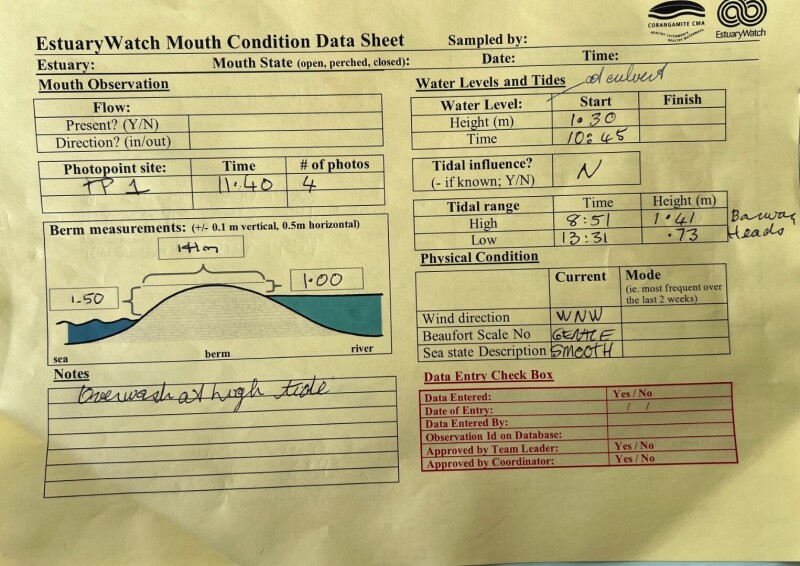 CORANGAMITE CMA
HEALTHY CATCHMENTS
HEALTHY WATERWAYS
EstuaryWatch
EstuaryWatch Mouth Condition Data Sheet Sampled by:
Estuary: Mouth State (open, perched, closed): Date: Time:
Mouth Observation
Flow:
Present? (Y/N)
Direction? (in/out)
Photopoint site: Time # of photos
TP 1 11.40 4
Berm measurements: (+/- 0.1 m vertical, 0.5m horizontal)
141m
1.50 1.00
sea berm river
Notes
Overwash at high tide
Water Levels and Tides at culvert
Water Level: Start Finish
Height (m) 1.30
Time 10:45
Tidal influence?
(- if known; Y/N) N
Tidal range Time Height (m)
High 8:51 1.41 Barwon
Low 13:31 .73 Heads
Physical Condition
Current Mode
(ie. most frequent over
the last 2 weeks)
Wind direction WNW
Beaufort Scale No GENTLE
Sea state Description SMOOTH
Data Entry Check Box
Data Entered: Yes / No
Date of Entry: / /
Data Entered By:
Observation Id on Database:
Approved by Team Leader: Yes / No
Approved by Coordinator: Yes / No